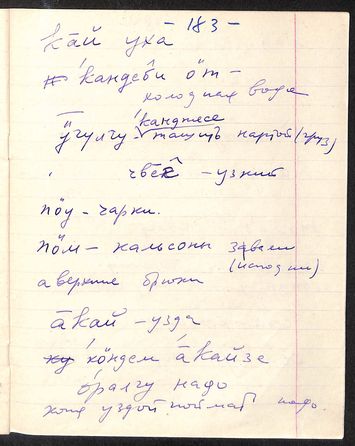 - 183 -
кай уха
кандеби öт -
холодная вода
канджесе
ӱгулгу тащить нартой (груз)
чвэ̄ - узкий
пöу - чарки.
пöм - кальсоны звали
(исподни)
а верхние брюки
āкай - узда
кöндем āкайзе
öралгу надо
коня уздой поймать надо.